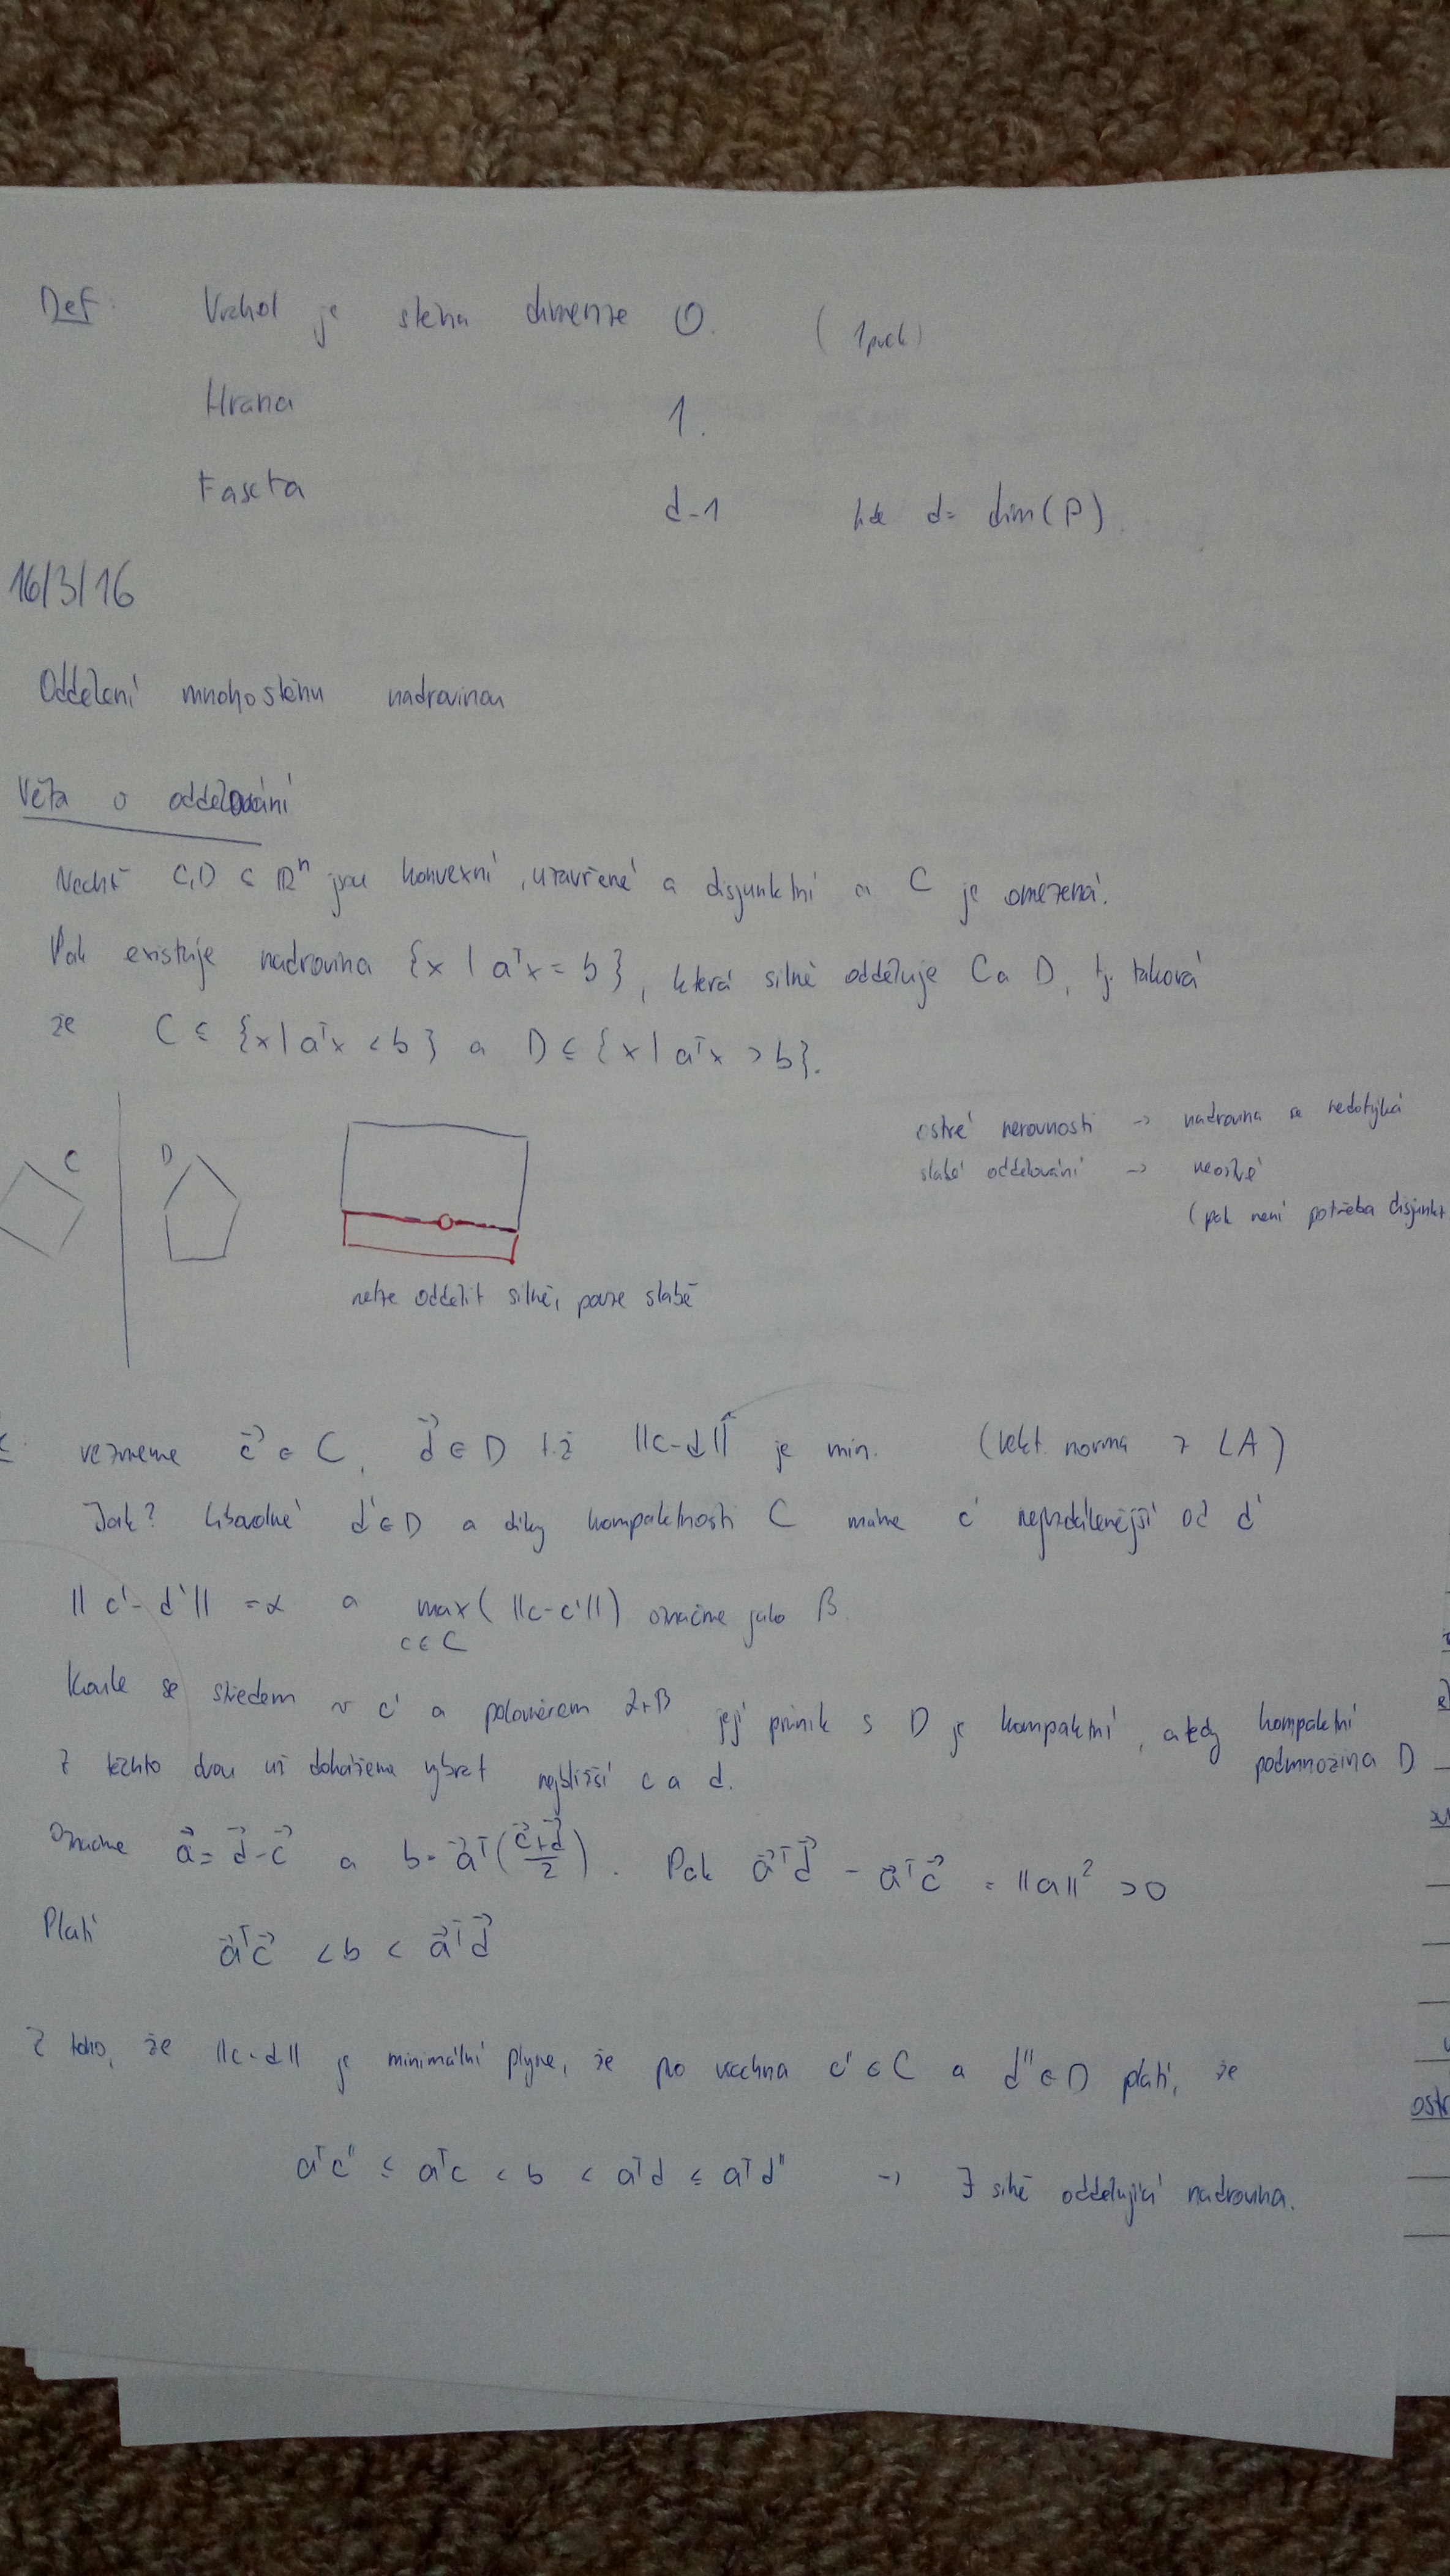 Def: Vrchol je stěna dimenze 0. (1 prvek)
Hrana 1.
Faseta d-1 kde d = dim(P).
16/3/16
Oddělení mnohostěnu nadrovinou
Věta o oddělování
Nechť C,D ⊆ ℝⁿ jsou konvexní, uzavřené a disjunktní a C je omezená.
Pak existuje nadrovina {x | aᵀx = b}, která silně odděluje C a D, tj. taková
že C ⊆ {x | aᵀx < b} a D ⊆ {x | aᵀx > b}.
C D
ostré nerovnosti → nadrovina se nedotýká
slabé oddělování → neostré
(pak není potřeba disjunkt
nelze oddělit silně, pouze slabě
vezmeme c⃗ ∈ C, d⃗ ∈ D t.ž. ||c-d|| je min. (vekt. norma z LA)
Jak? Libovolné d' ∈ D a díky kompaktnosti C máme c' nejvzdálenější od d'
||c'-d'|| = α a max(||c-c'||) označme jako β.
c∈C
Koule se středem v c' a poloměrem α+β její průnik s D je kompaktní, a tedy kompaktní
podmnožina D
Z těchto dvou už dokážeme vybrat nejbližší c a d.
Označme a⃗ = d⃗-c⃗ a b = a⃗ᵀ((c⃗+d⃗)/2). Pak a⃗ᵀd⃗ - a⃗ᵀc⃗ = ||a||² > 0
Platí a⃗ᵀc⃗ < b < a⃗ᵀd⃗
Z toho, že ||c-d|| je minimální plyne, že pro všechna c'' ∈ C a d'' ∈ D platí, že
aᵀc'' ≤ aᵀc < b < aᵀd ≤ aᵀd'' → ∃ silně oddělující nadrovina.